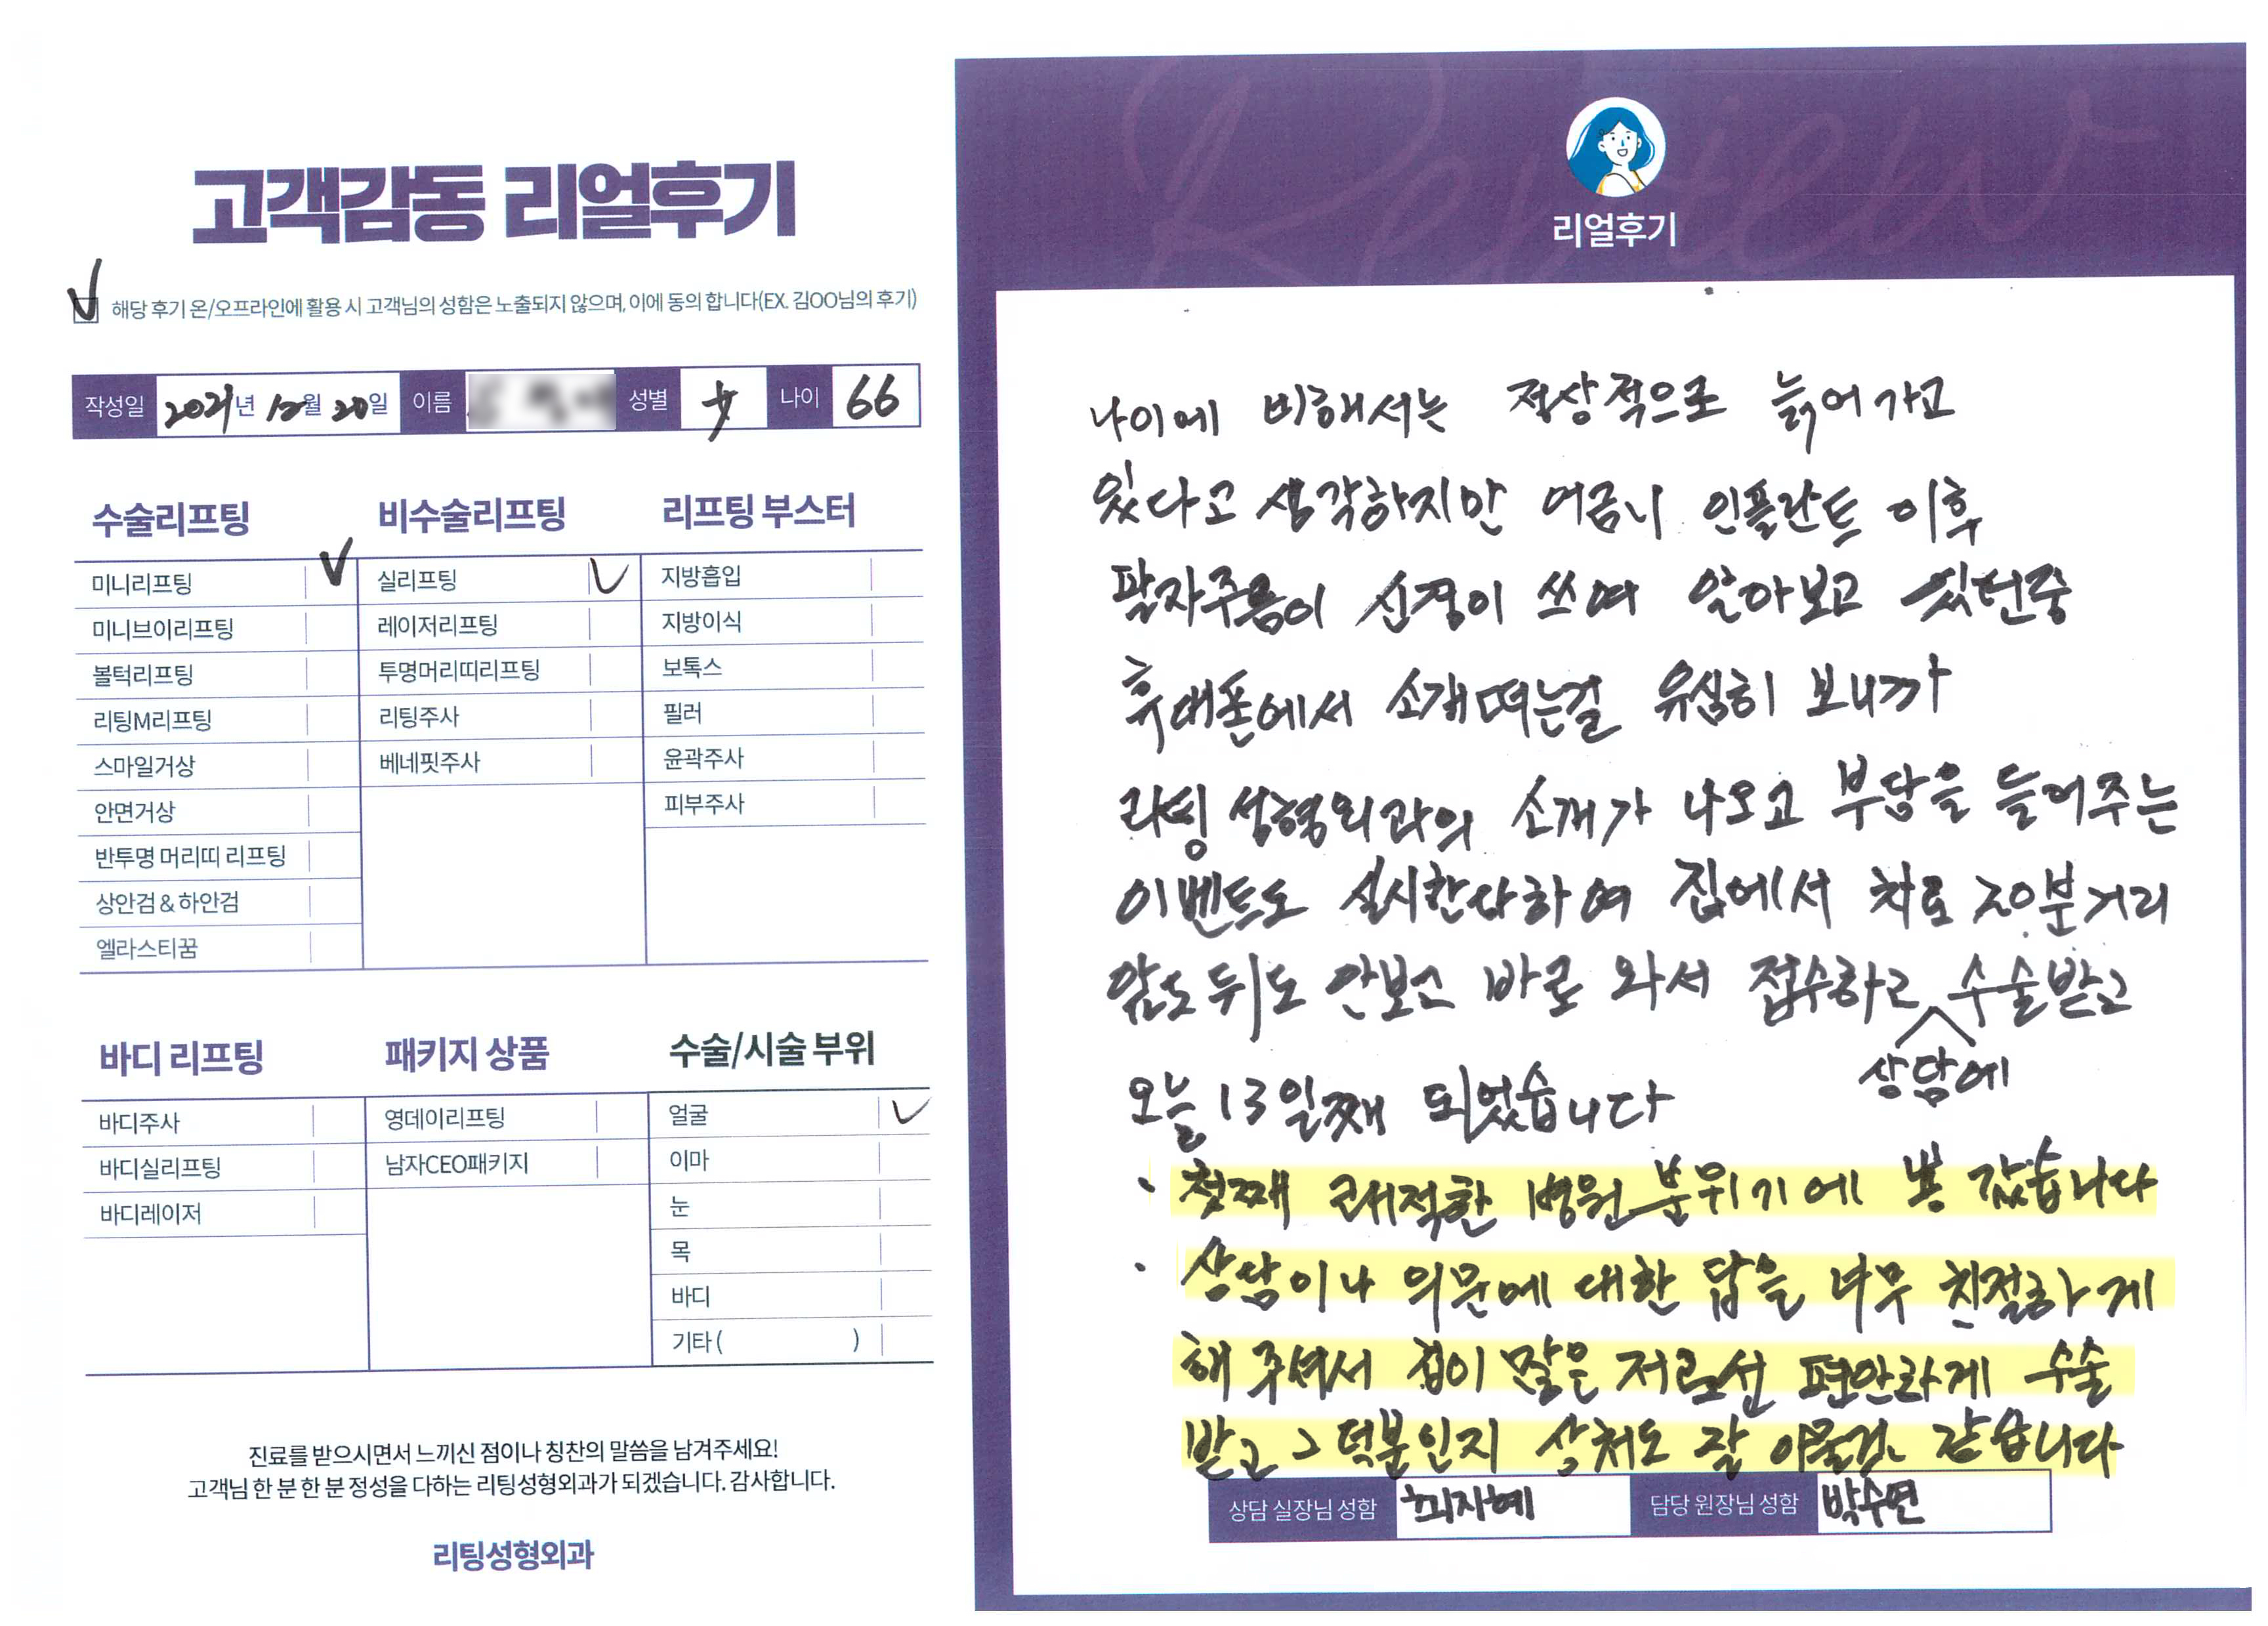 고객감동 리얼후기
해당 후기 온/오프라인에 활용 시 고객님의 성함은 노출되지 않으며, 이에 동의 합니다(EX. 김OO님의 후기)
작성일 2021년 12월 20일 이름 성별 女 나이 66
수술리프팅
미니리프팅
미니브이리프팅
볼턱리프팅
리팅M리프팅
스마일거상
안면거상
반투명 머리띠 리프팅
상안검 & 하안검
엘라스티꿈
비수술리프팅
실리프팅
레이저리프팅
투명머리띠리프팅
리팅주사
베네핏주사
리프팅 부스터
지방흡입
지방이식
보톡스
필러
윤곽주사
피부주사
바디 리프팅
바디주사
바디실리프팅
바디레이저
패키지 상품
영데이리프팅
남자CEO패키지
수술/시술 부위
얼굴
이마
눈
목
바디
기타 ( )
진료를 받으시면서 느끼신 점이나 칭찬의 말씀을 남겨주세요!
고객님 한 분 한 분 정성을 다하는 리팅성형외과가 되겠습니다. 감사합니다.
리팅성형외과
Review
리얼후기
나이에 비해서는 정상적으로 늙어가고
있다고 생각하지만 어금니 인플란트 이후
팔자주름이 신경이 쓰여 알아보고 있던중
휴대폰에서 소개떠는걸 유심히 보니까
리팅 성형외과의 소개가 나오고 부담을 들어주는
이벤트도 실시한다하여 집에서 차로 20분거리
앞도 뒤도 안보고 바로 와서 접수하고 수술받고
상담에
오늘 13일째 되었습니다
· 첫째 쾌적한 병원 분위기에 뿅 갔습니다
· 상담이나 의문에 대한 답을 너무 친절하게
해 주셔서 겁이 많은 저로선 편안하게 수술
받고 그 덕분인지 상처도 잘 아물것 같습니다
상담 실장님 성함 최지혜 담당 원장님 성함 박수연